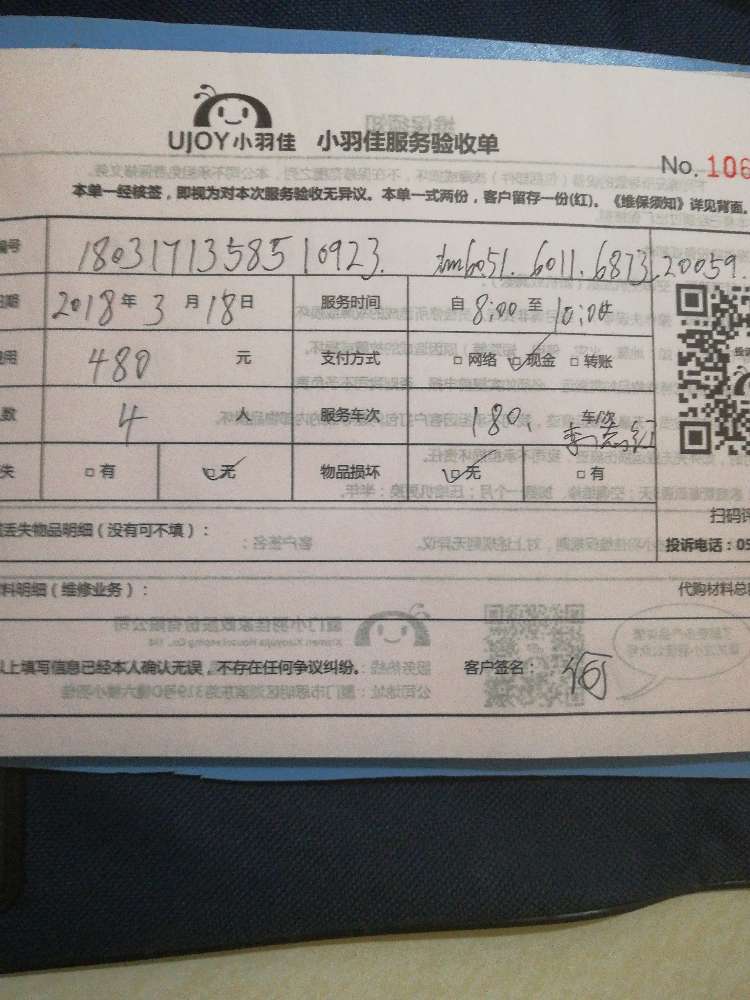 UJOY小羽佳 小羽佳服务验收单
No. 106
本单一经核签，即视为对本次服务验收无异议。本单一式两份，客户留存一份(红)。《维保须知》详见背面。
号 18031713585 10923. 6051. 6011. 6873. 20059.
期 2018年 3月 18日 服务时间 自 8:00 至 10:04
用 480 元 支付方式 □ 网络 □ 现金 □ 转账
数 4 人 服务车次 180. 车/次
失 □ 有 □ 无 物品损坏 □ 无 □ 有
丢失物品明细（没有可不填）：
扫码评
投诉电话：05
料明细（维修业务）： 代购材料总
上填写信息已经本人确认无误，不存在任何争议纠纷。 客户签名：何